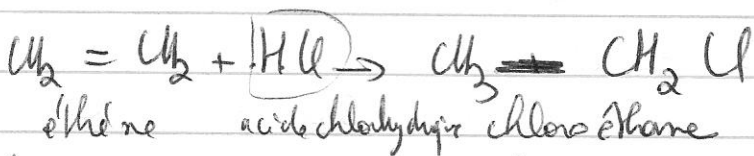 CH₂ = CH₂ + HCl → CH₃ - CH₂ Cl
éthène acide chlorhydrique chloro éthane